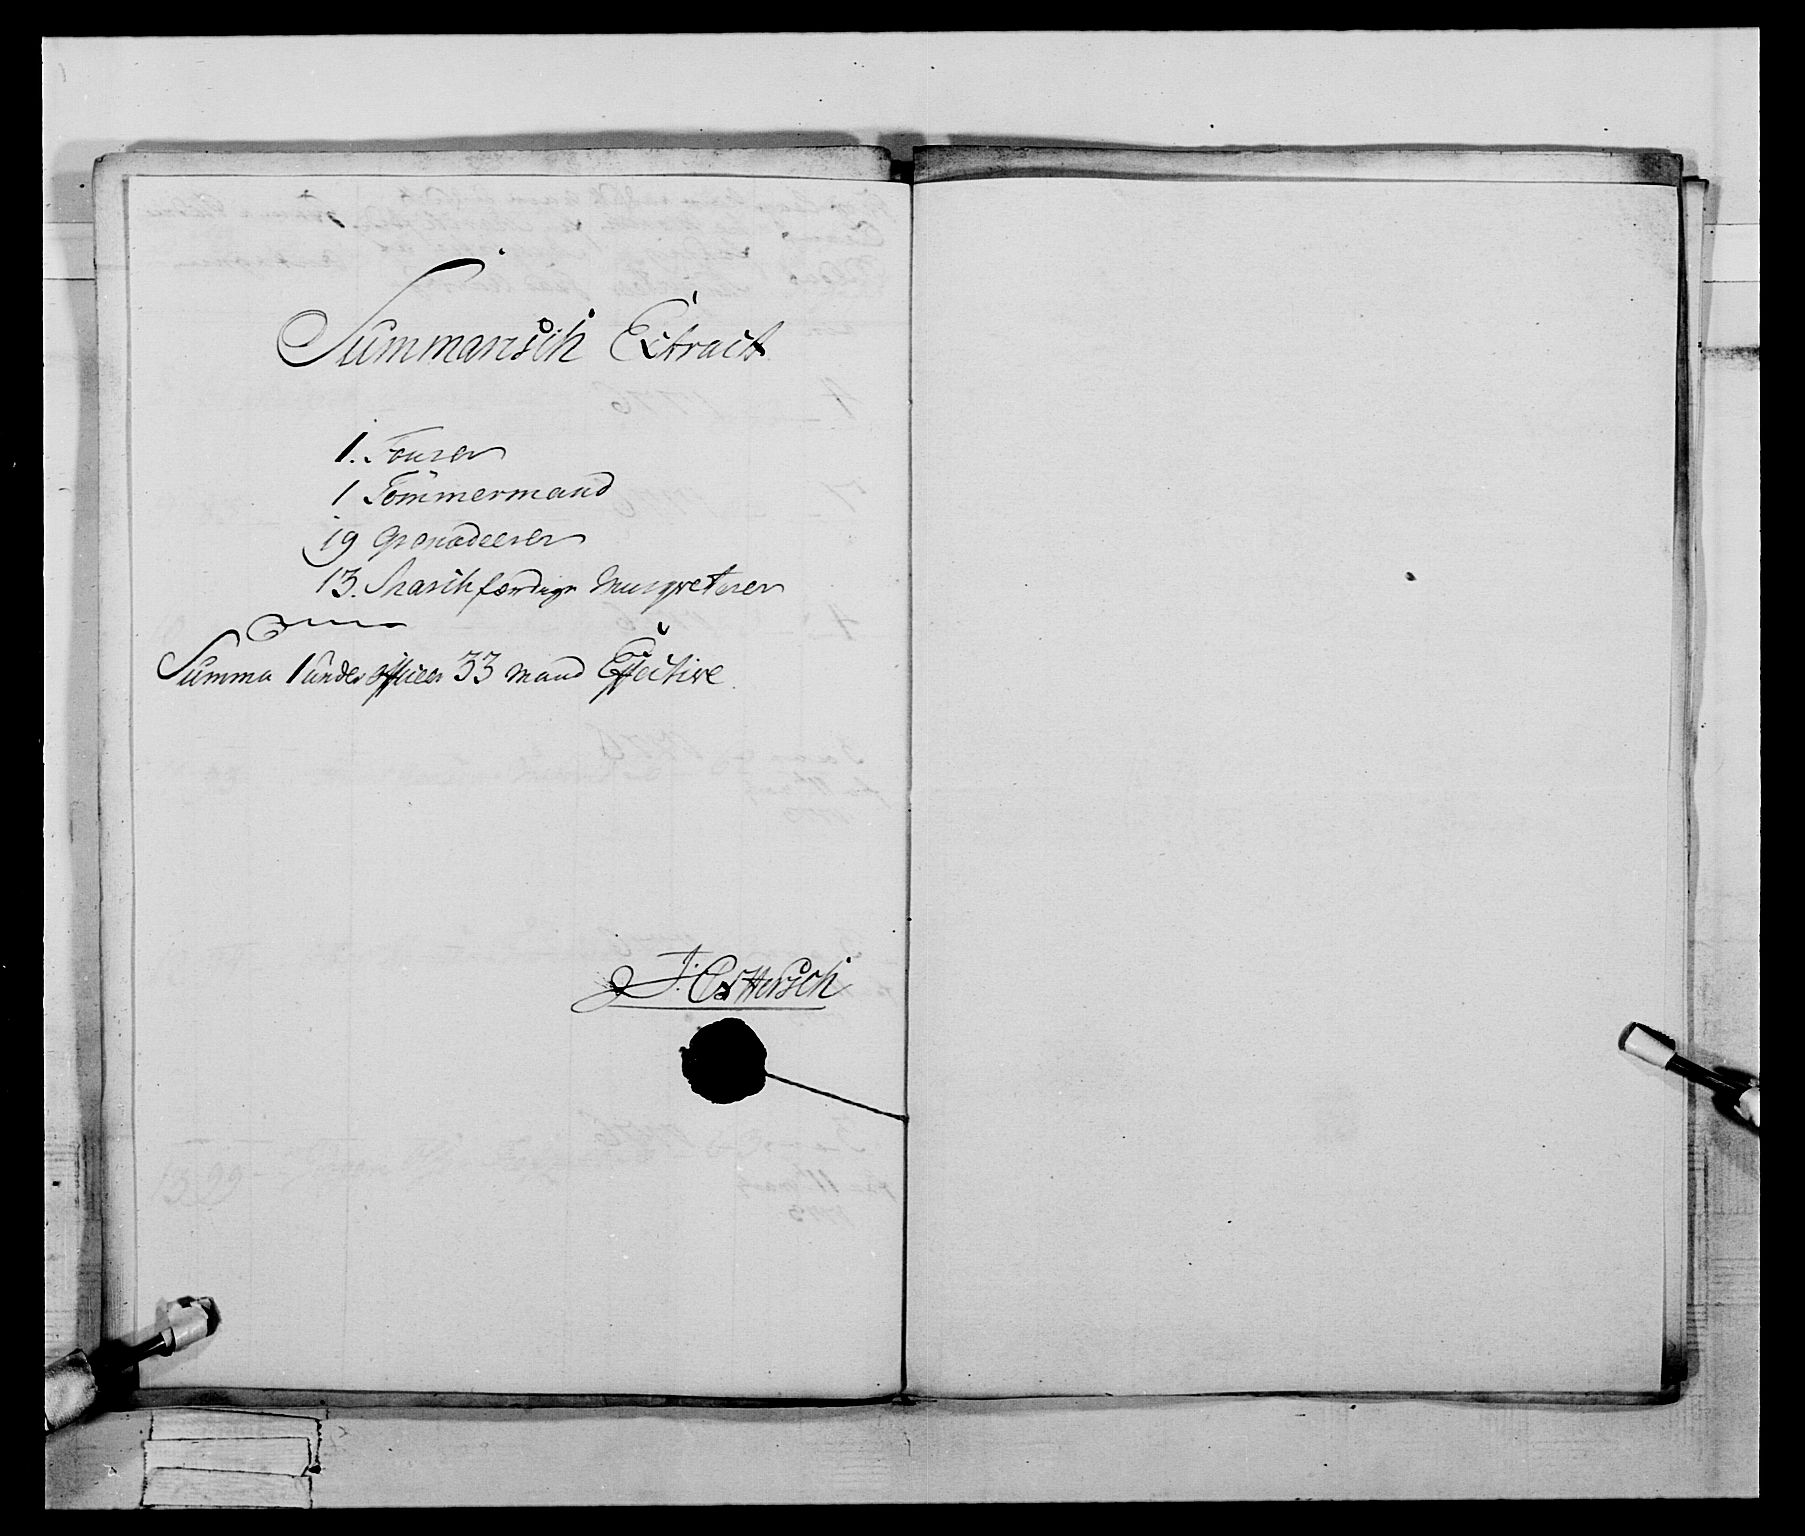 Summarisch Extract
1. Fourer
1 Tömmermand
19 Grenadeerer
13. Marchfærdige Musqveterer
Summa 1 under officer 33 mand Effective